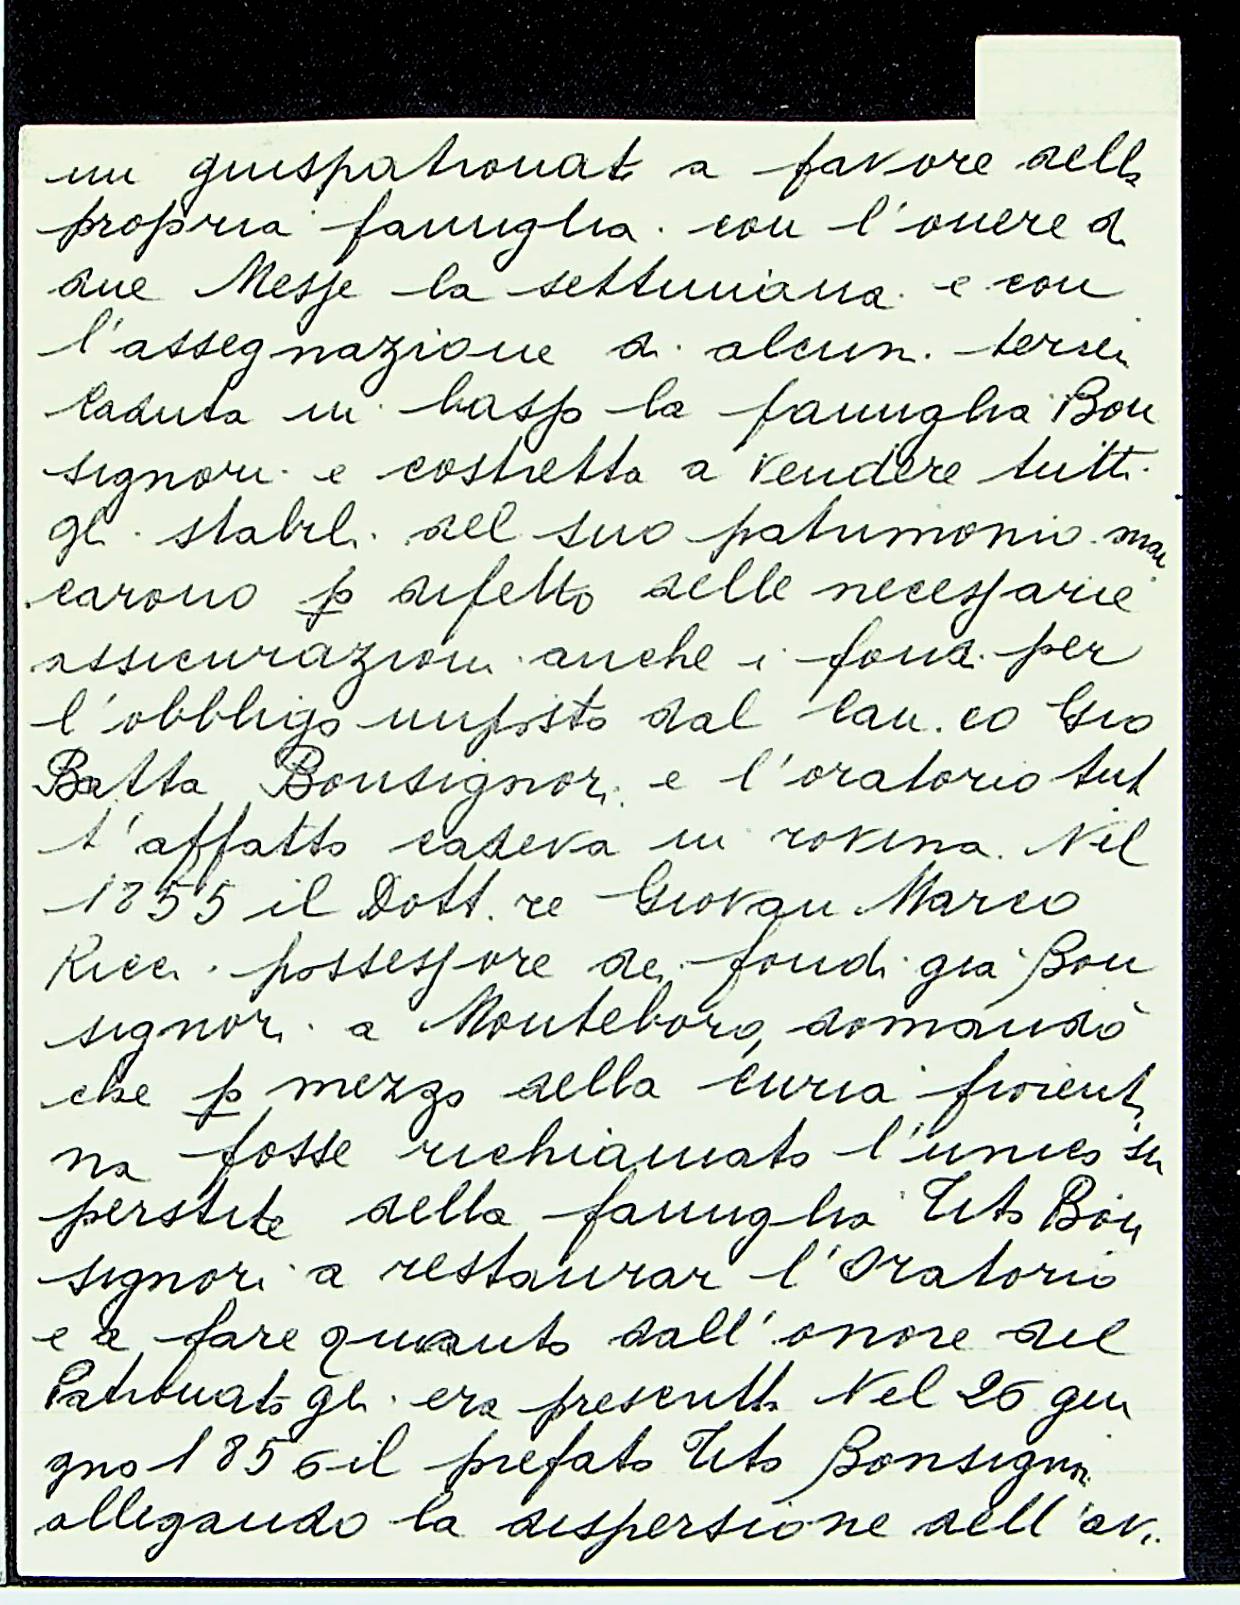 un giuspatronato a favore della
propria famiglia. con l'onere di
due Messe la settimana. e con
l'assegnazione di alcuni. terreni
Caduta in basso la famiglia Bon
signori e costretta a vendere tutti
gli stabili. del suo patrimonio man
carono p difetto delle necessarie
assicurazioni anche i fondi per
l'obbligo imposto dal Can.co Gio
Batta Bonsignori e l'oratorio tut
t'affatto cadeva in rovina. Nel
1855 il Dott.re Giovan Marco
Ricci possessore dei fondi già Bon
signori a Monteboro, domandò
che p mezzo della curia fiorenti
na fosse richiamato l'unico su
perstite della famiglia Tito Bon
signori a restaurar l'Oratorio
e a fare quanto dall'onore del
Patronato gli era prescritto Nel 26 giu
gno 1856 il prefato Tito Bonsignori
allegando la dispersione dell'av.